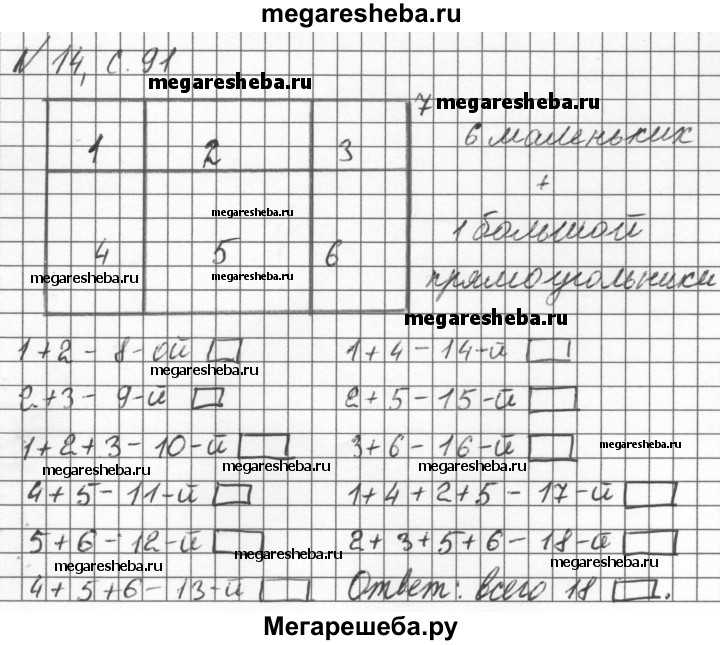 megaresheba.ru
N 14, с. 91
megaresheba.ru
1 2 3 7
megaresheba.ru
6 маленьких
+
megaresheba.ru
1 большой
4 5 6
megaresheba.ru
megaresheba.ru
прямоугольники
megaresheba.ru
1+2 - 8-ой
1+4 - 14-й
megaresheba.ru
2+3 - 9-й
2+5 - 15-й
1+2+3 - 10-й
3+6 - 16-й
megaresheba.ru
megaresheba.ru
megaresheba.ru
megaresheba.ru
4+5 - 11-й
1+4+2+5 - 17-й
5+6 - 12-й
2+3+5+6 - 18-й
megaresheba.ru
megaresheba.ru
megaresheba.ru
4+5+6 - 13-й
Ответ: всего 18 .
Мегарешеба.ру